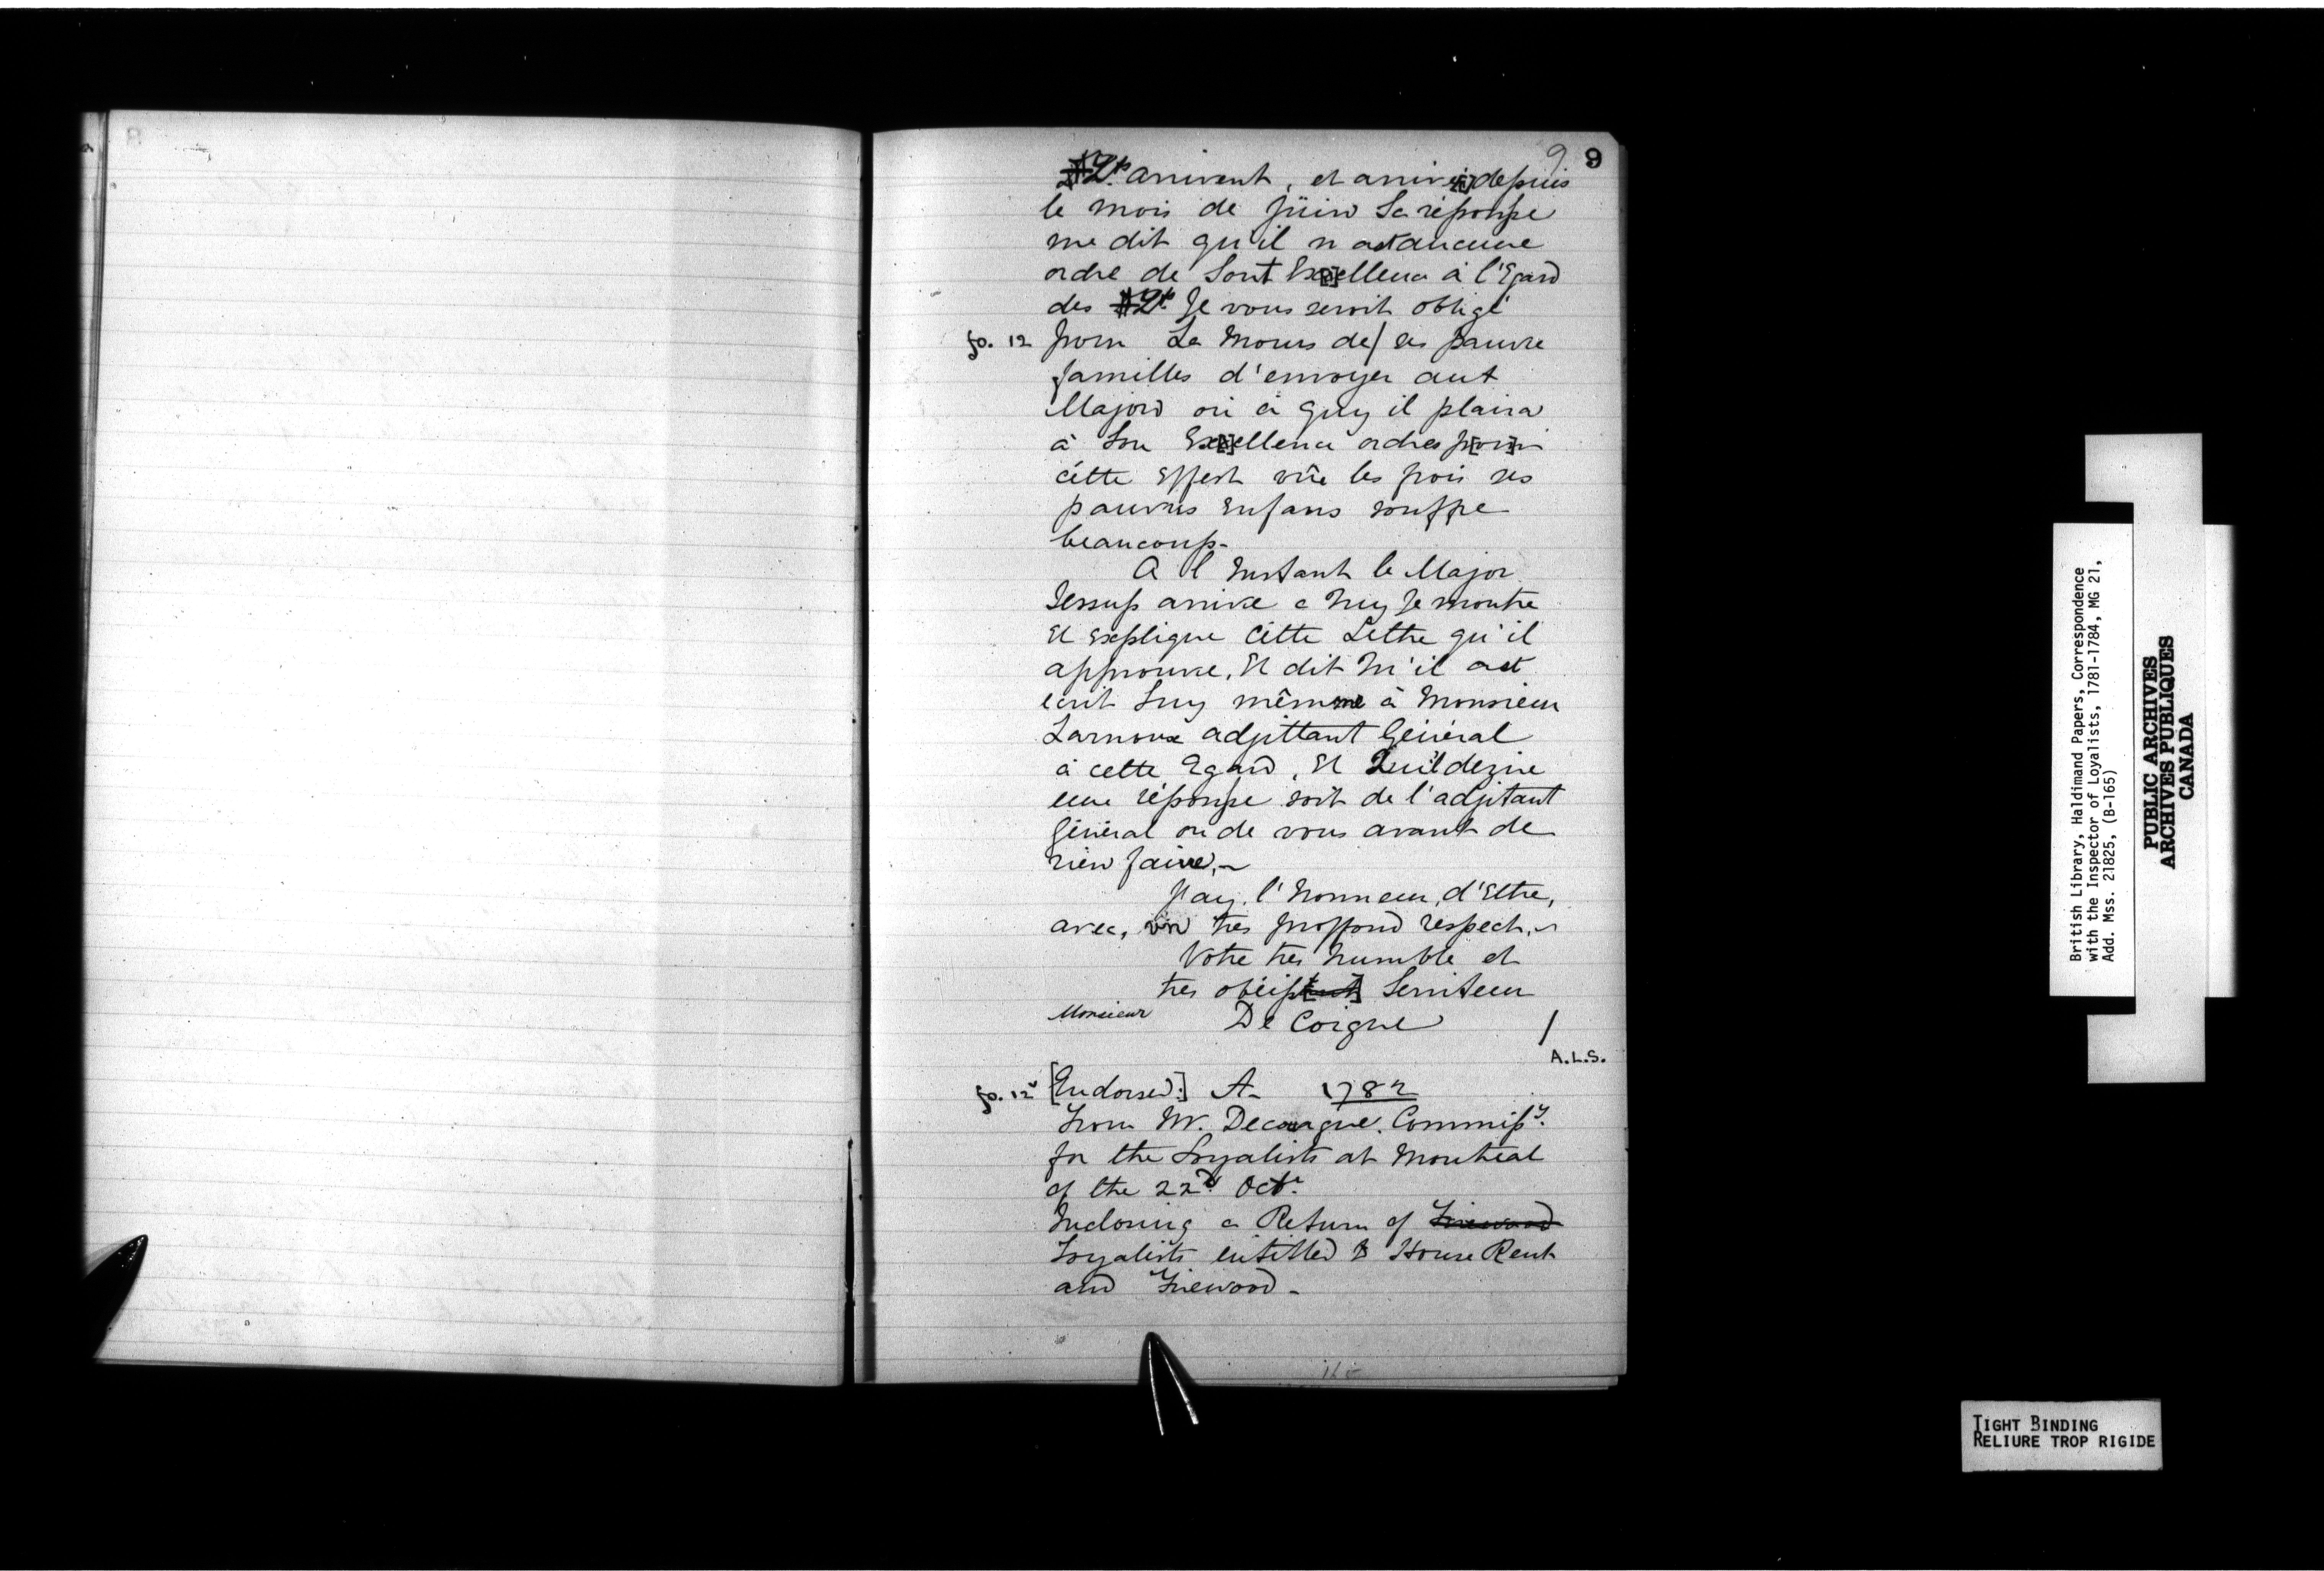 9. 9
Lts. arrivent, et arrivé[s] depuis
le mois de Jüin Sa réponsse
me dit qu'il n ast aucune
ordre de Sont Ex[c]ellence à l'Egard
des Lts. Je vous seroit obligé
fo. 12 pour Le Mours de/ ses pauvre
familles d'envoyer aut
Majord oú à quy il plaira
à Son Ex[c]ellence ordres p[ou]r
cétte Effest vûe les frois ses
pauvres Enfans souffre
beaucoup-
A l Instant le Major
Jessup arrive a huy Je montre
Et Explique Cétte Lettre qu'il
approuve, Et dit M'il ast
écrit Luy mêmme à Monsieur
Larnoux adjittant Général
à cette Egard, Et Qu'il dezire
eune réponsse soit de l'adjitant
Général ou de vous avant de
rien faire,-
J'ay, l'honneur, d'Eltre,
avec, un tres proffond respect,-
Votre tres humble et
tres obéiss[ant] Serviteur
Monsieur De Coigne /
A.L.S.
fo. 12v [Endorsed:] A- 1782
From Mr. Decoigne. Commissy.
for the Loyalists at Montreal
of the 22d. Octr.
Inclosing a Return of Firewood
Loyalists entitled to House Rent
and Firewood-
British Library, Haldimand Papers, Correspondence
with the Inspector of Loyalists, 1781-1784, MG 21,
Add. Mss. 21825, (B-165)
PUBLIC ARCHIVES
ARCHIVES PUBLIQUES
CANADA
TIGHT BINDING
RELIURE TROP RIGIDE